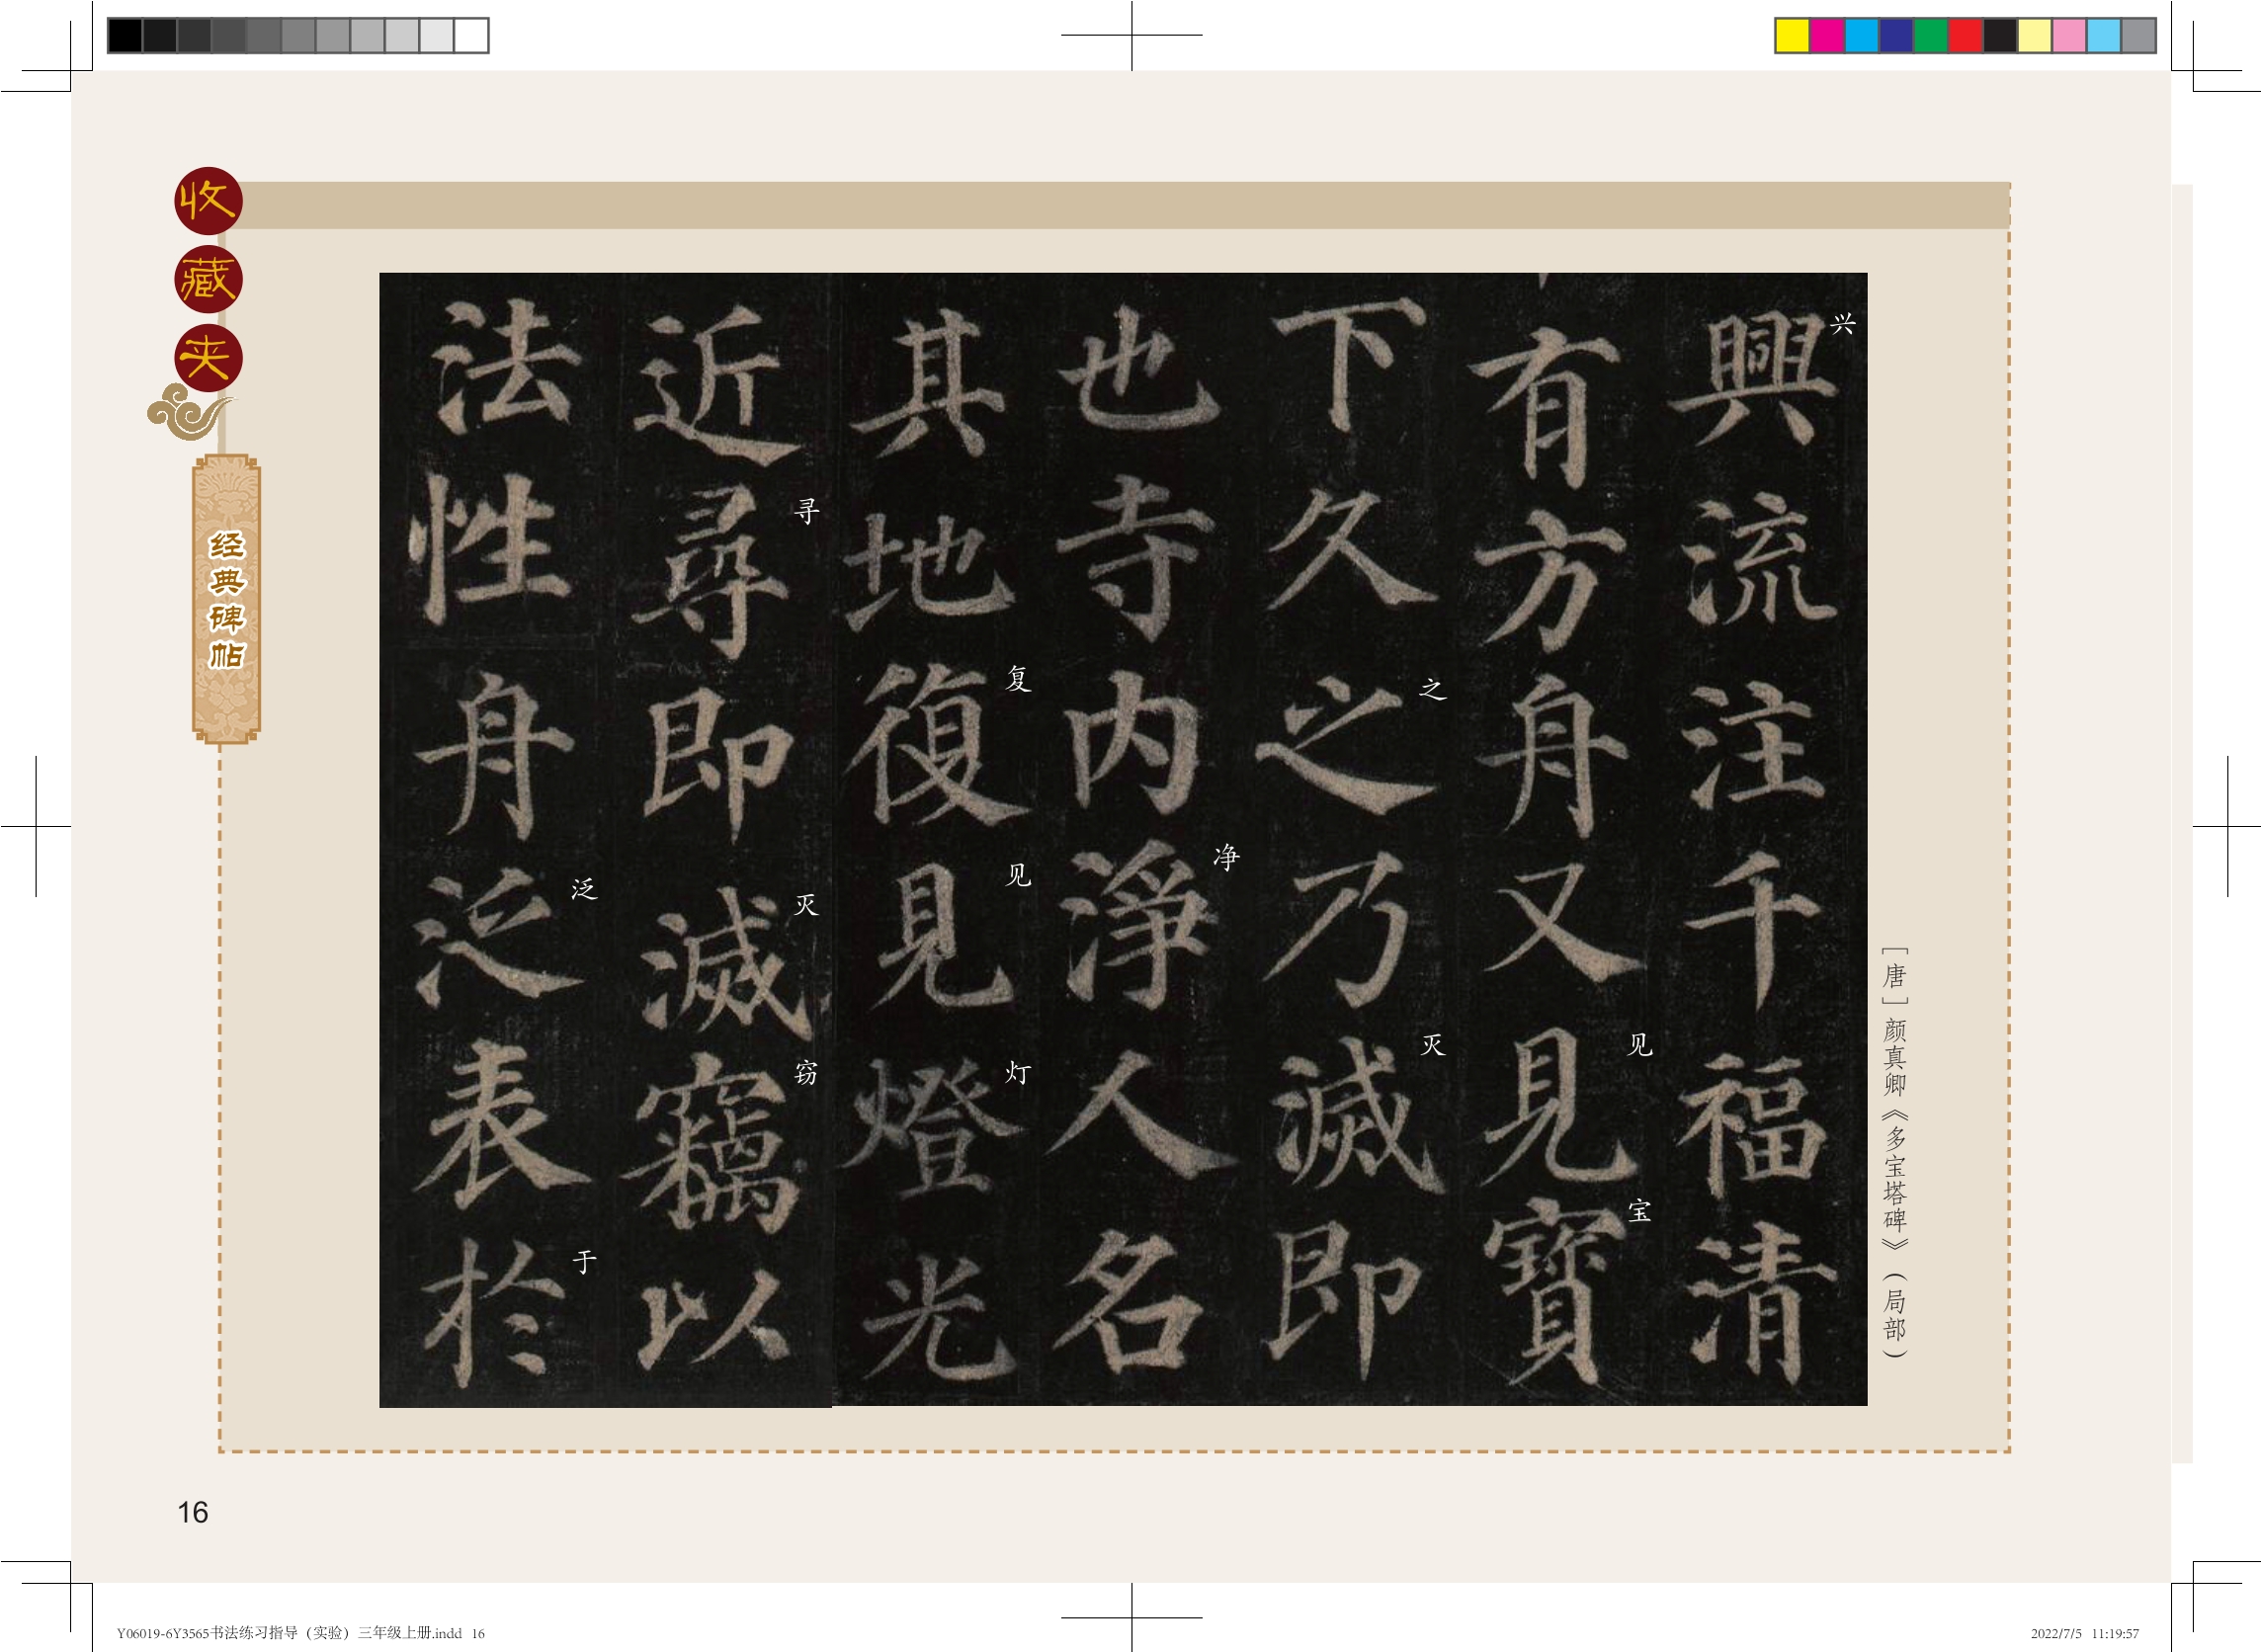 收藏夹
经典碑帖
興流注千福清
兴
有方舟又見寶
见
宝
下久之乃滅即
之
灭
也寺内淨人名
净
其地復見燈光
复
见
灯
近尋即滅竊以
寻
灭
窃
法性舟泛表於
泛
于
［唐］颜真卿《多宝塔碑》（局部）
16
Y06019-6Y3565书法练习指导（实验）三年级上册.indd 16
2022/7/5 11:19:57